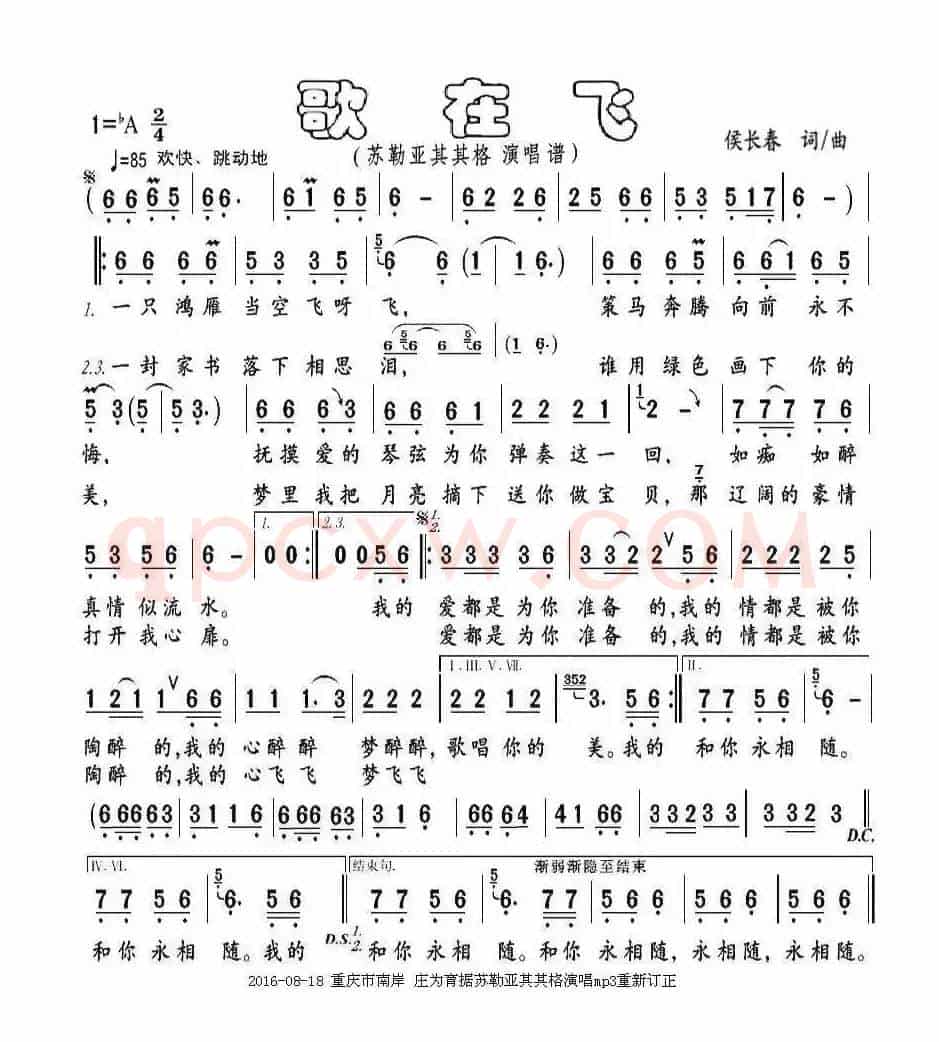 歌在飞
1=♭A 2/4
侯长春 词/曲
♩=85 欢快、跳动地
(苏勒亚其其格 演唱谱)
( 6 6 6 5 | 6 6. | 6 1 6 5 | 6 - | 6 2 2 6 | 2 5 6 6 | 5 3 5 1 7 | 6 - )
‖: 6 6 6 6 | 5 3 3 5 | 5 6 6 ( 1 | 1 6. ) | 6 6 6 5 | 6 6 1 6 5
1. 一只鸿雁 当空飞呀 飞, 策马奔腾 向前 永不
6 5 6 6 5 6 | ( 1 6. )
2.3. 一封家书 落下相思 泪, 谁用绿色 画下 你的
5 3 ( 5 | 5 3. ) | 6 6 6 3 | 6 6 6 1 | 2 2 2 1 | 1 2 - | 7 7 7 7 6
悔, 抚摸爱的 琴弦为你 弹奏这一 回, 如痴 如醉
7
美, 梦里我把 月亮摘下 送你做宝 贝, 那 辽阔的豪情
1. 2.3. 1.
2.
5 3 5 6 | 6 - | 0 0 :‖ 0 0 5 6 ‖: 3 3 3 3 6 | 3 3 2 2 5 6 | 2 2 2 2 5
真情似流 水。 我的 爱都是为你 准备 的,我的 情都是被你
打开我心 扉。 爱都是为你 准备 的,我的 情都是被你
I.III.V.VII. II.
1 2 1 1 6 6 | 1 1 1. 3 | 2 2 2 | 2 2 1 2 | 352 3. 5 6 :‖ 7 7 5 6 | 5 6 -
陶醉 的,我的 心醉醉 梦醉醉, 歌唱你的 美。我的 和你永相 随。
陶醉 的,我的 心飞飞 梦飞飞
( 6 66 63 | 3 1 1 6 | 6 66 63 | 3 1 6 | 66 64 | 41 66 | 3 3 2 3 3 | 3 3 2 3 ‖
D.C.
IV.VI. 结束句. 渐弱渐隐至结束
7 7 5 6 | 5 6. 5 6 | 7 7 5 6 | 5 6. 7 7 | 5 6 5 6 | 5 6 5 6 ‖
和你永相 随。我的 D.S. 1. 和你永相 随。和你 永相随,永相随,永相随。
2.
2016-08-18 重庆市南岸 庄为育据苏勒亚其其格演唱mp3重新订正
qpcxw.COM